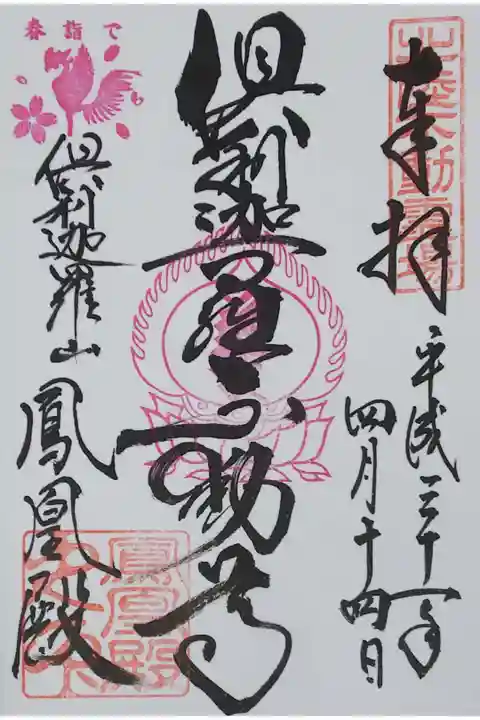 奉拝
平成三十一年
四月十四日
北陸不動霊場
倶利迦羅不動尊
春詣で
倶利迦羅山
鳳凰殿